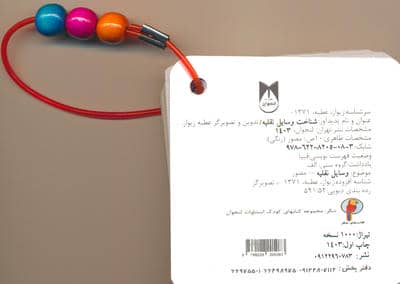 لنجوان
سرشناسه: زیوار، عطیه، ۱۳۷۱-
عنوان و نام پدیدآور: شناخت وسایل نقلیه/تدوین و تصویرگر عطیه زیوار.
مشخصات نشر: تهران: لنجوان، ۱۴۰۳
مشخصات ظاهری: ۱۰ص: مصور (رنگی).
شابک: ۹۷۸-۶۲۲-۸۲۰۵-۰۸-۳
وضعیت فهرست نویسی: فیپا
یادداشت: گروه سنی: الف.
موضوع: وسایل نقلیه -- مصور
شناسه افزوده: زیوار، عطیه، ۱۳۷۱ -، تصویرگر
رده بندی دیویی: ۵۹۱/۵۲
مجموعه کتابهای کودک انتشارات لنجوان
تیراژ: ۱۰۰۰ نسخه
چاپ اول: ۱۴۰۳
نشر: ۰۹۱۲۲۹۶۰۷۸۳
دفتر پخش: